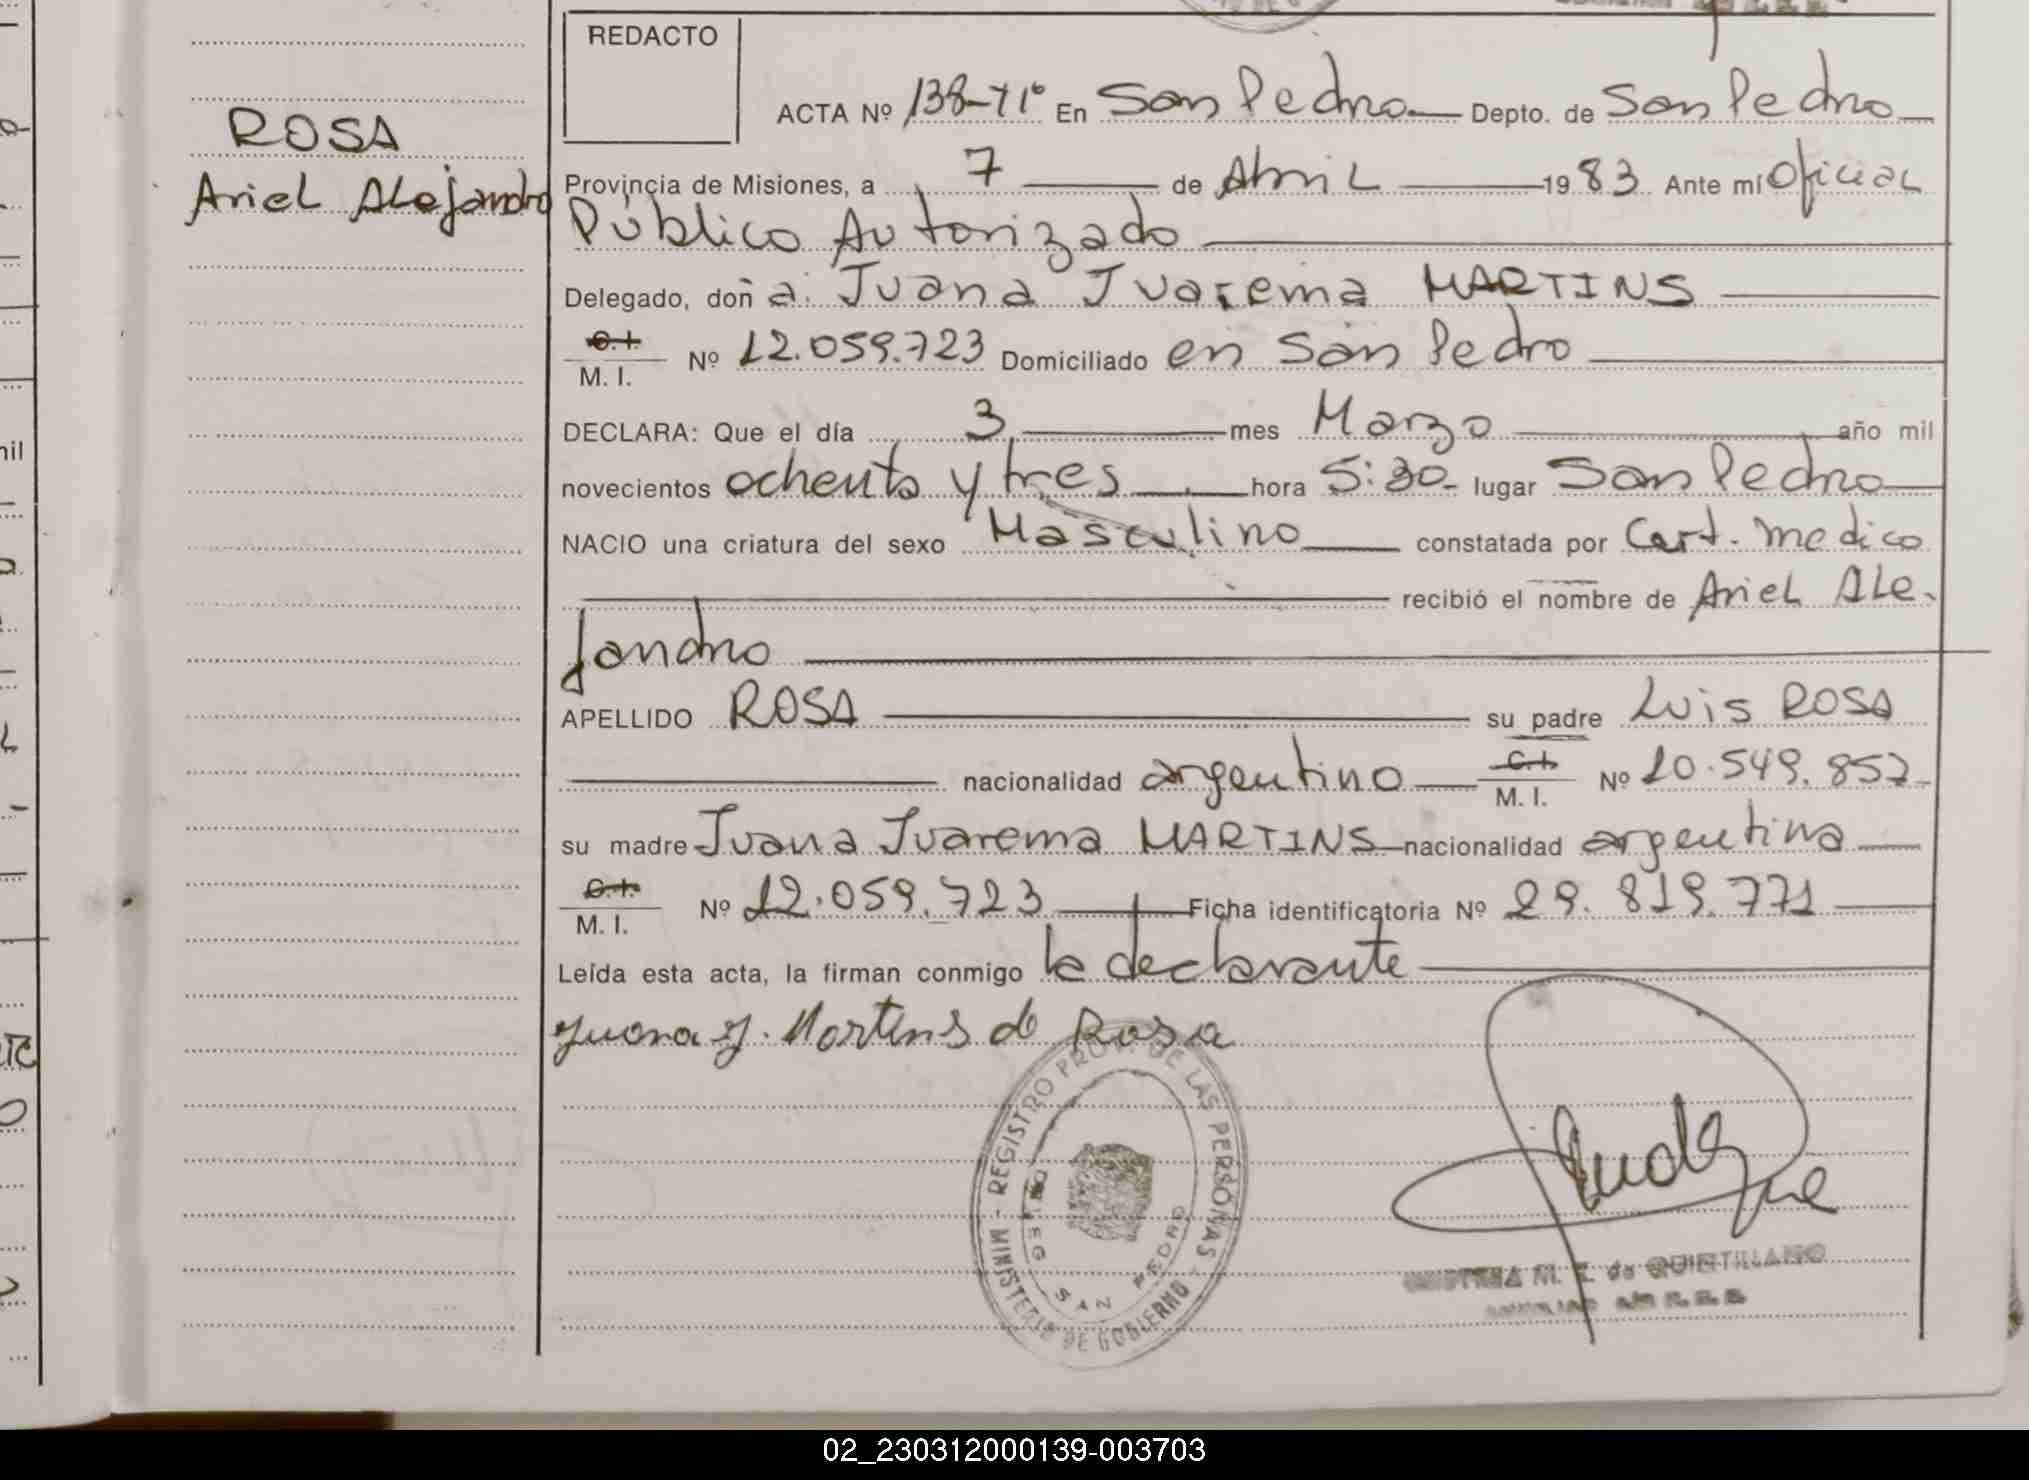 REDACTO
ROSA
Ariel Alejandro
ACTA Nº 138-T1º En San Pedro Depto. de San Pedro
Provincia de Misiones, a 7 de Abril 1983 Ante mí Oficial
Público Autorizado
Delegado, doña Juana Juarema MARTINS
C.I.
M. I. Nº 12.059.723 Domiciliado en San Pedro
DECLARA: Que el día 3 mes Marzo año mil
novecientos ochenta y tres hora 5:30 lugar San Pedro
NACIO una criatura del sexo Masculino constatada por Cert. medico
recibió el nombre de Ariel Ale-
jandro
APELLIDO ROSA su padre Luis ROSA
nacionalidad argentino C.I.
M. I. Nº 10.549.852
su madre Juana Juarema MARTINS nacionalidad argentina
C.I.
M. I. Nº 12.059.723 Ficha identificatoria Nº 29.819.771
Leída esta acta, la firman conmigo la declarante
Juana J. Martins de Rosa
MINISTERIO DE GOBIERNO - REGISTRO PROV. DE LAS PERSONAS -
SAN PEDRO
M. E. de QUINTILLANO
02_230312000139-003703